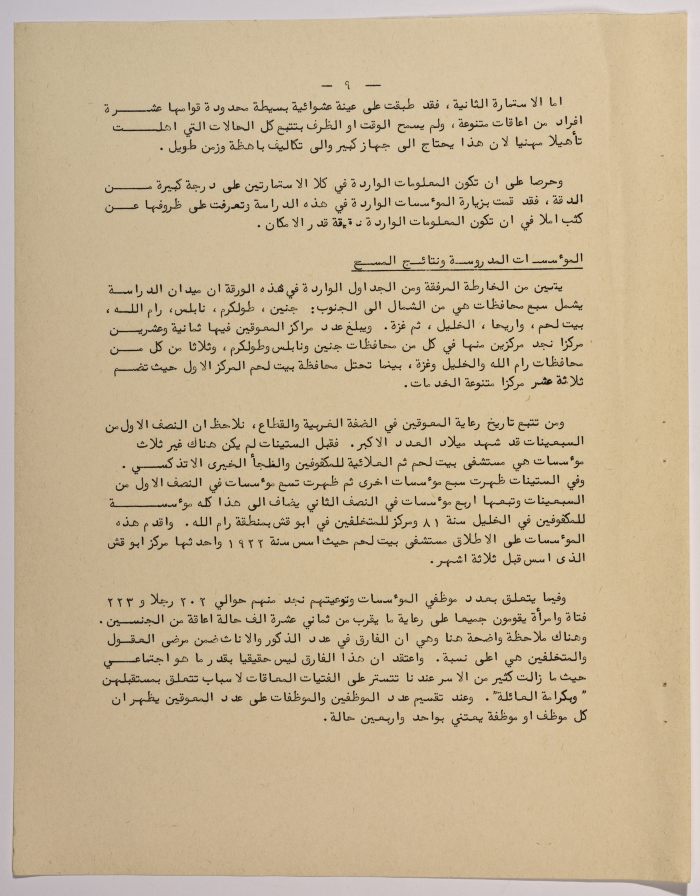 — ٩ —
اما الاستمارة الثانية ، فقد طبقت على عينة عشوائية بسيطة محدودة قوامها عشرة
افراد من اعاقات متنوعة ، ولم يسمح الوقت او الظرف بتتبع كل الحالات التي اهلت
تأهيلا مهنيا لان هذا يحتاج الى جهاز كبير والى تكاليف باهظة وزمن طويل .
وحرصا على ان تكون المعلومات الواردة في كلا الاستمارتين على درجة كبيرة من
الدقة ، فقد قمت بزيارة المؤسسات الواردة في هذه الدراسة وتعرفت على ظروفها عن
كثب املا في ان تكون المعلومات الواردة دقيقة قدر الامكان .
المؤسسات المدروسة ونتائج المسح
يتبين من الخارطة المرفقة ومن الجداول الواردة في هذه الورقة ان ميدان الدراسة
يشمل سبع محافظات هي من الشمال الى الجنوب : جنين ، طولكرم ، نابلس ، رام الله ،
بيت لحم ، واريحا ، الخليل ، ثم غزة . ويبلغ عدد مراكز المعوقين فيها ثمانية وعشرين
مركزا نجد مركزين منها في كل من محافظات جنين ونابلس وطولكرم ، وثلاثا من كل من
محافظات رام الله والخليل وغزة ، بينما تحتل محافظة بيت لحم المركز الاول حيث تضم
ثلاثة عشر مركزا متنوعة الخدمات .
ومن تتبع تاريخ رعاية المعوقين في الضفة الغربية والقطاع ، نلاحظ ان النصف الاول من
السبعينات قد شهد ميلاد العدد الاكبر . فقبل الستينات لم يكن هناك غير ثلاث
مؤسسات هي مستشفى بيت لحم ثم العلائية للمكفوفين والملجأ الخيرى الارثذكسي .
وفي الستينات ظهرت سبع مؤسسات اخرى ثم ظهرت تسع مؤسسات في النصف الاول من
السبعينات وتبعها اربع مؤسسات في النصف الثاني يضاف الى هذا كله مؤسسة
للمكفوفين في الخليل سنة ٨١ ومركز للمتخلفين في ابو قش بمنطقة رام الله . واقدم هذه
المؤسسات على الاطلاق مستشفى بيت لحم حيث اسس سنة ١٩٢٢ واحدثها مركز ابو قش
الذى اسس قبل ثلاثة اشهر .
وفيما يتعلق بعدد موظفي المؤسسات ونوعيتهم نجد منهم حوالي ٢٠٢ رجلا و ٢٢٣
فتاة وامرأة يقومون جميعا على رعاية ما يقرب من ثماني عشرة الف حالة اعاقة من الجنسين .
وهناك ملاحظة واضحة هنا وهي ان الفارق في عدد الذكور والاناث ضمن مرضى العقول
والمتخلفين هي اعلى نسبة . واعتقد ان هذا الفارق ليس حقيقيا بقدر ما هو اجتماعي
حيث ما زالت كثير من الاسر عندنا تتستر على الفتيات المعاقات لاسباب تتعلق بمستقبلهن
" وبكرامة العائلة " . وعند تقسيم عدد الموظفين والموظفات على عدد المعوقين يظهر ان
كل موظف او موظفة يعتني بواحد واربعين حالة .